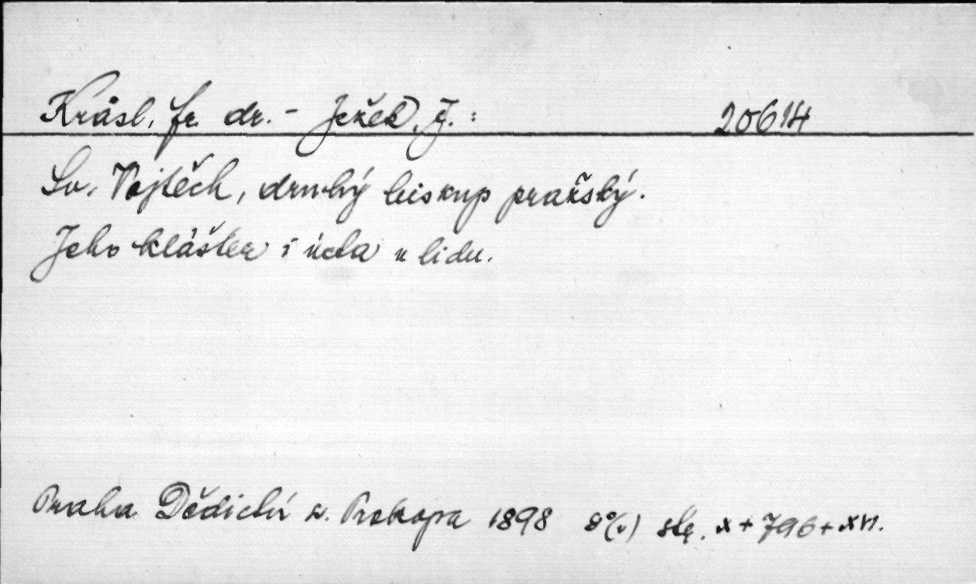 Krásl, Fr. dr. - Ježek, J. : 20614
Sv. Vojtěch, druhý biskup pražský.
Jeho klášter i úcta u lidu.
Praha Dědictví sv. Prokopa 1898 8°(v) str. X + 796 + XII.